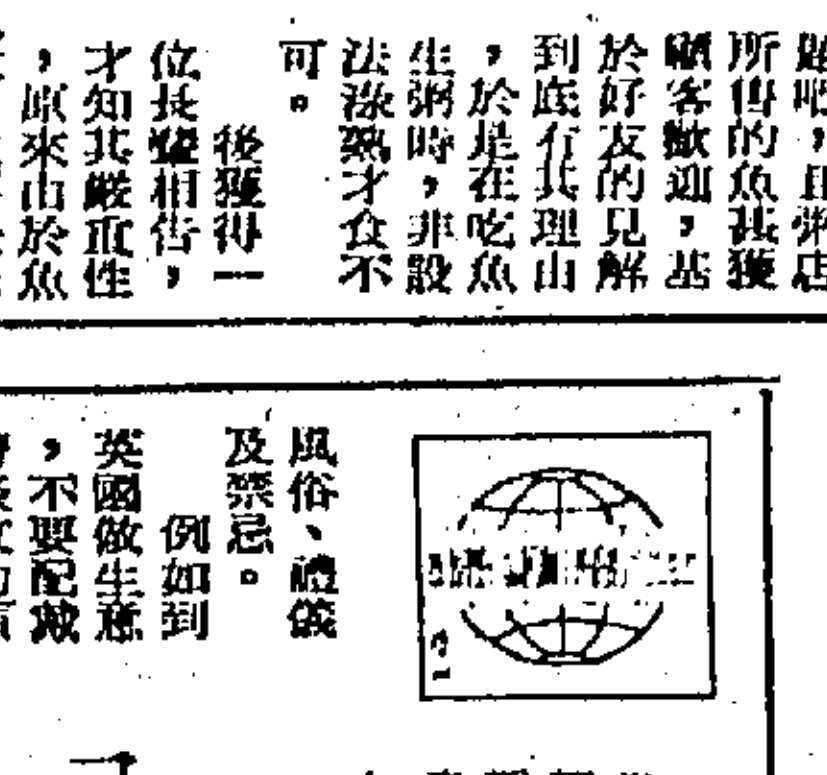 所售的魚甚獲
顧客歡迎，基
於好友的見解
到底有其理由
，於是在吃魚
生粥時，非設
法淥熟才食不
可。
後獲得一
位長輩相告，
才知其嚴重性
，原來由於魚
風俗、禮儀
及禁忌。
例如到
英國做生意
，不要配戴